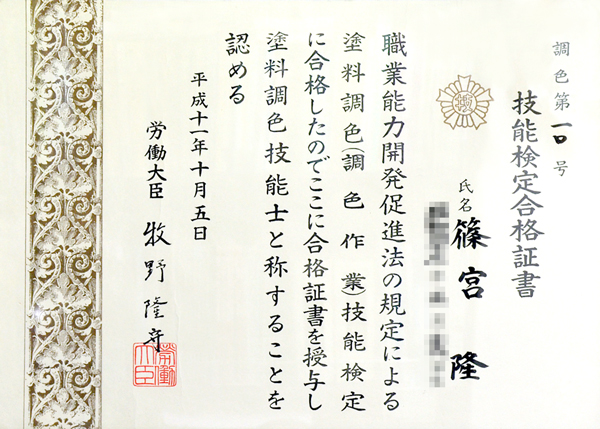 調色第一〇号
技能検定合格証書
氏名 篠宮 隆
職業能力開発促進法の規定による
塗料調色(調色作業)技能検定
に合格したのでここに合格証書を授与し
塗料調色技能士と称することを
認める
平成十一年十月五日
労働大臣 牧野隆守
労働大臣